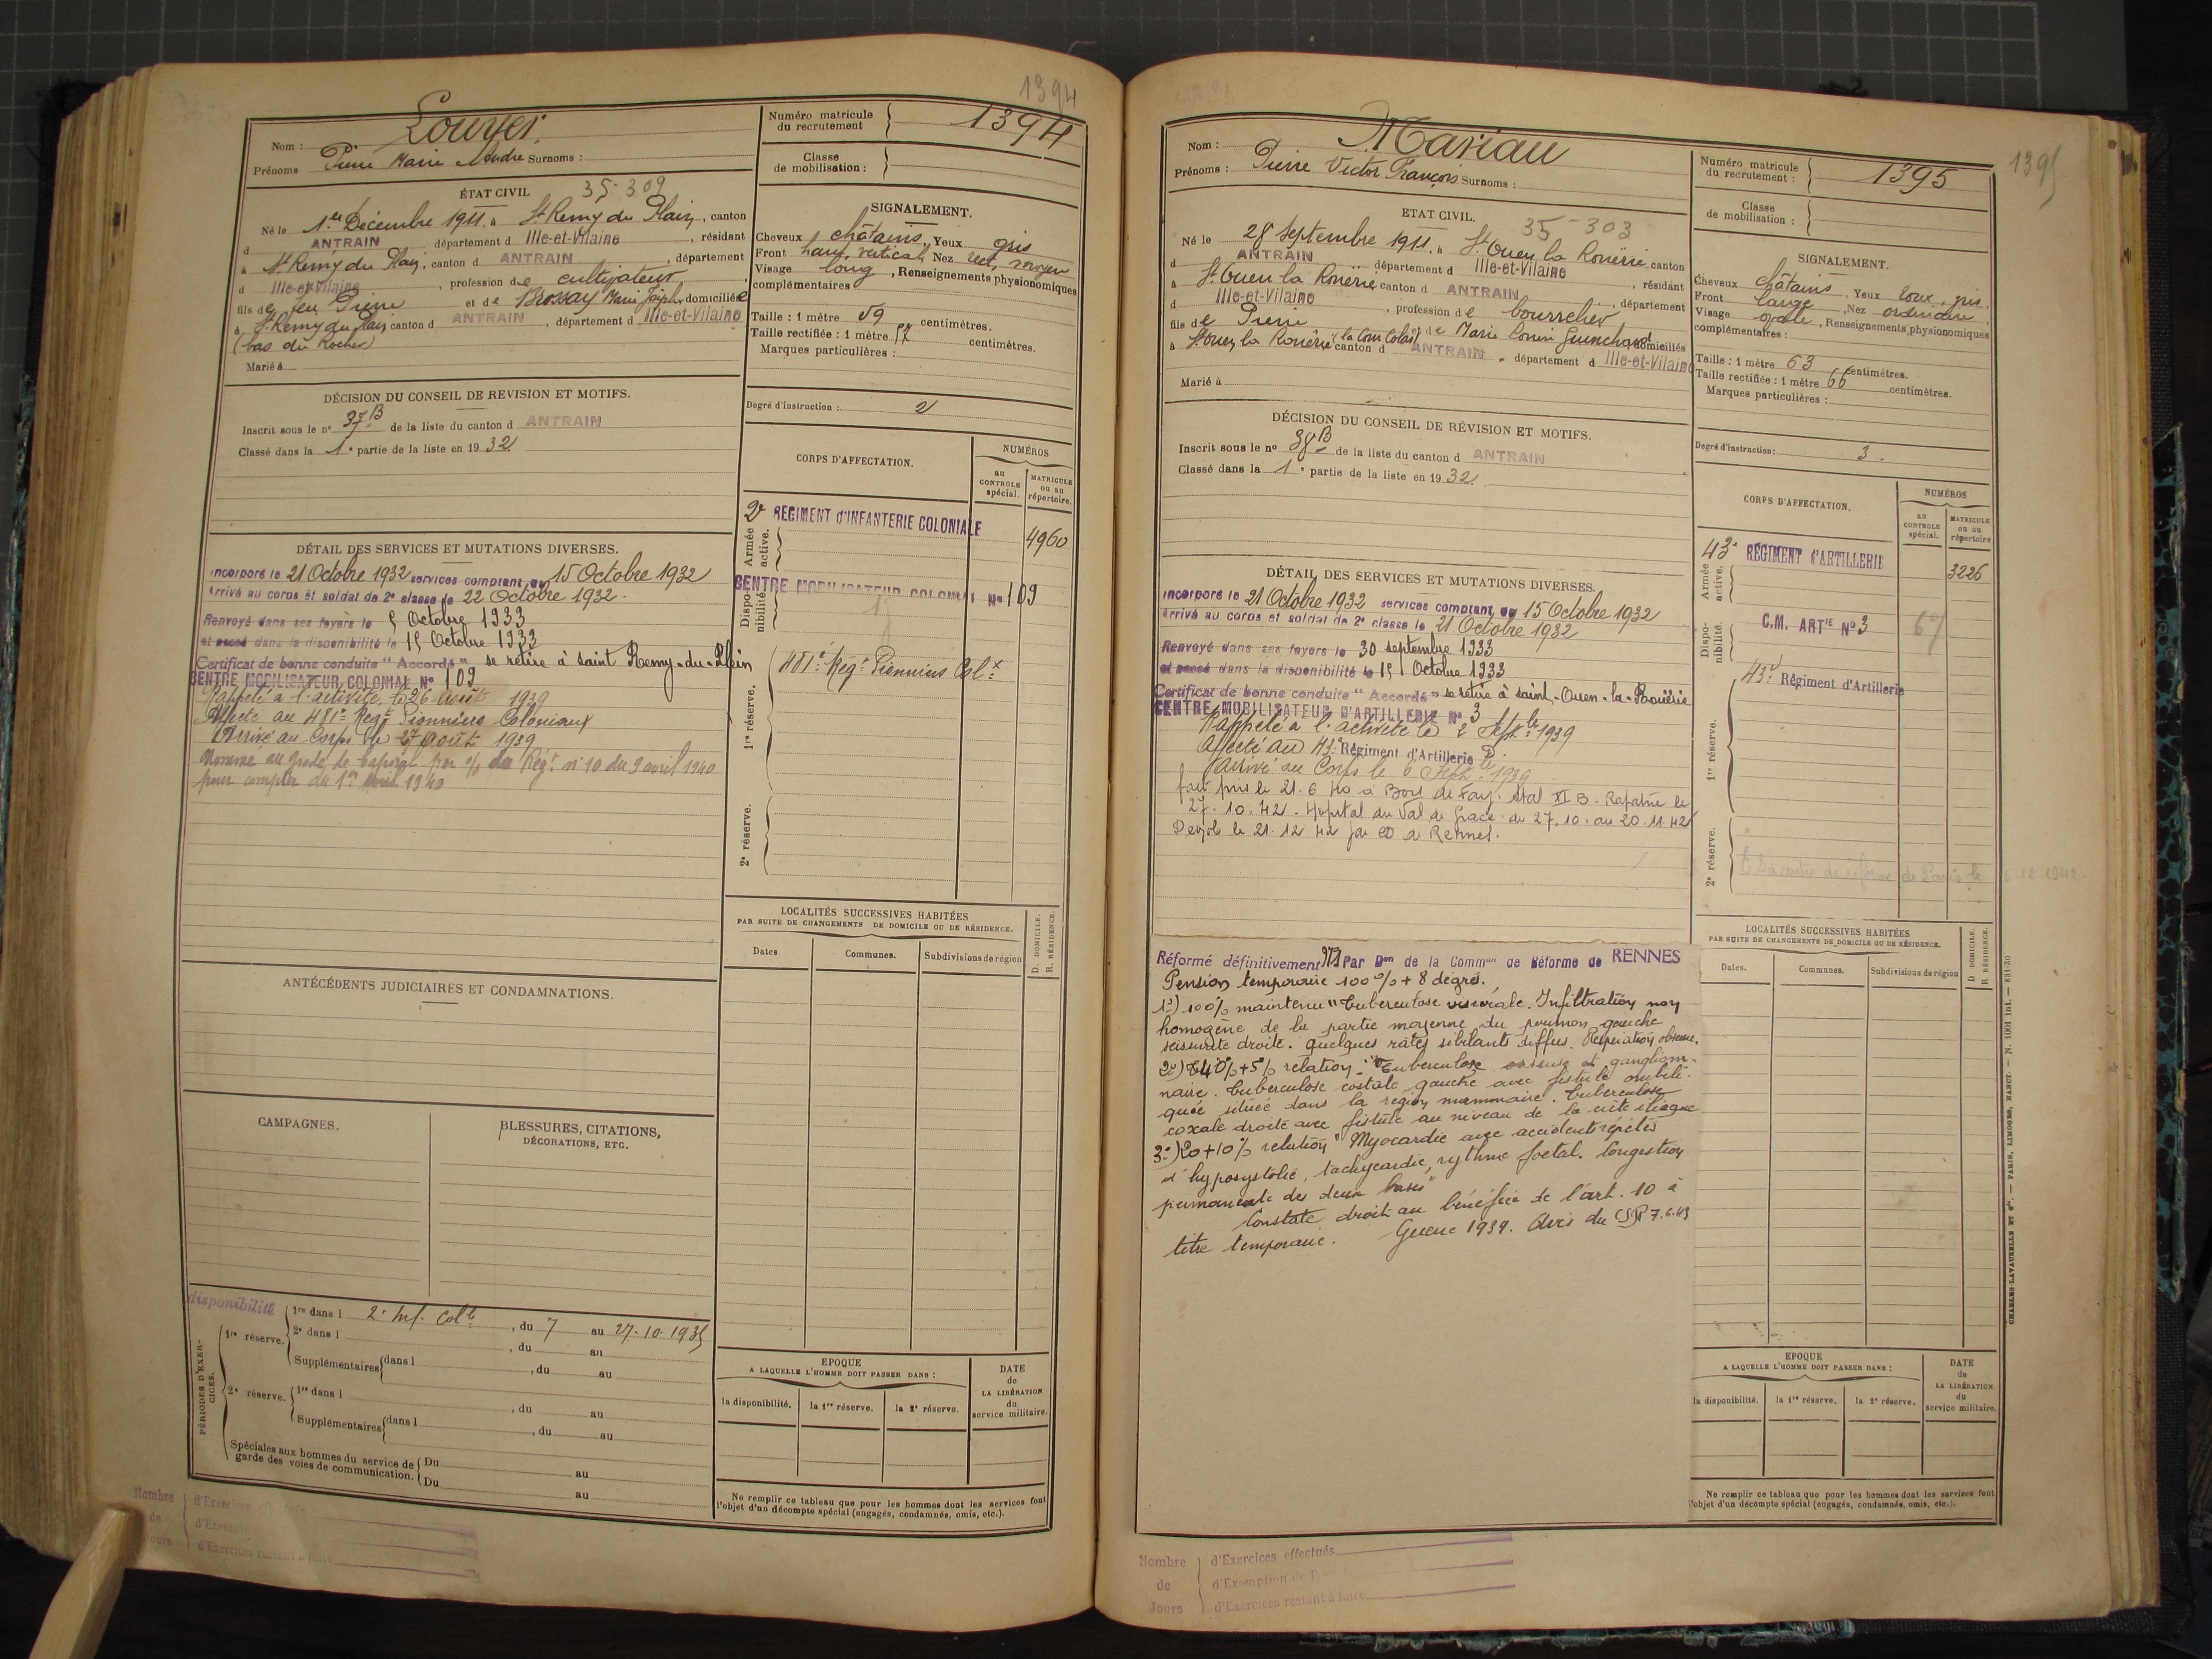 1394
Nom : Louyer
Prénoms Pierre Marie André Surnoms :
Numéro matricule du recrutement 1394
Classe de mobilisation :
ÉTAT CIVIL
35-309
Né le 1er Décembre 1911 à St Remy du Plain, canton
d ANTRAIN département d Ille-et-Vilaine, résidant
à St Remy du Plain, canton d ANTRAIN, département
d Ille-et-Vilaine, profession de cultivateur
fils de feu Pierre et de Brossay Marie Josèphe domiciliée
à St Remy du Plain canton d ANTRAIN, département d Ille-et-Vilaine
(bas du Rocher)
Marié à
SIGNALEMENT.
Cheveux châtains, Yeux gris
Front haut, vertical, Nez rect, moyen
Visage long, Renseignements physionomiques
complémentaires
Taille : 1 mètre 59 centimètres.
Taille rectifiée : 1 mètre centimètres.
Marques particulières :
Degré d'instruction : 2
DÉCISION DU CONSEIL DE REVISION ET MOTIFS.
Inscrit sous le no 37B de la liste du canton d ANTRAIN
Classé dans la 1e partie de la liste en 1932
CORPS D'AFFECTATION.
NUMÉROS
au CONTROLE spécial.
MATRICULE ou au répertoire.
Armée active.
2e REGIMENT D'INFANTERIE COLONIALE
4960
Disponibilité.
CENTRE MOBILISATEUR COLONIAL No 109
1re réserve.
481e Regt Pionniers Colx
2e réserve.
DÉTAIL DES SERVICES ET MUTATIONS DIVERSES.
Incorporé le 21 Octobre 1932 services comptant du 15 Octobre 1932
Arrivé au corps et soldat de 2e classe le 22 Octobre 1932.
Renvoyé dans ses foyers le 5 Octobre 1933
et passé dans la disponibilité le 15 Octobre 1933
Certificat de bonne conduite "Accordé" se retire à saint Remy-du-Plein
CENTRE MOBILISATEUR COLONIAL No 109
Rappelé à l'activité le 26 août 1939
Affecté au 481e Regt Pionniers Coloniaux
Arrivé au Corps le 27 août 1939
Nommé au grade de caporal par o/ du Régt no 10 du 9 avril 1940
pour compter du 1er avril 1940
LOCALITÉS SUCCESSIVES HABITÉES
PAR SUITE DE CHANGEMENTS DE DOMICILE OU DE RÉSIDENCE.
Dates
Communes.
Subdivisions de région
D. DOMICILE.
R. RÉSIDENCE.
ANTÉCÉDENTS JUDICIAIRES ET CONDAMNATIONS.
CAMPAGNES.
BLESSURES, CITATIONS,
DÉCORATIONS, ETC.
PÉRIODES D'EXERCICES.
disponibilité
1re réserve.
1re dans l 2e Inf. Colle, du 7 au 27-10-1935
2e dans l , du au
Supplémentaires dans l , du au
2e réserve.
1re dans l , du au
Supplémentaires dans l , du au
Spéciales aux hommes du service de garde des voies de communication.
Du au
Du au
EPOQUE
A LAQUELLE L'HOMME DOIT PASSER DANS :
la disponibilité.
la 1re réserve.
la 2e réserve.
DATE de LA LIBÉRATION du service militaire.
Ne remplir ce tableau que pour les hommes dont les services font
l'objet d'un décompte spécial (engagés, condamnés, omis, etc.).
Nombre de Jours
d'Exercices effectués
d'Exempt
d'Exercices restant à faire
1395
Nom : Mariau
Prénoms : Pierre Victor François Surnoms :
Numéro matricule du recrutement : 1395
Classe de mobilisation :
ETAT CIVIL.
35-303
Né le 28 septembre 1911 à St Ouen la Rouërie canton
d ANTRAIN département d Ille-et-Vilaine, résidant
à St Ouen la Rouërie canton d ANTRAIN, département
d Ille-et-Vilaine, profession de bourrelier
fils de Pierre et de Marie Louise Guinchard domiciliés
à St Ouen la Rouërie (la Cour Colas) canton d ANTRAIN, département d Ille-et-Vilaine
Marié à
SIGNALEMENT.
Cheveux châtains, Yeux roux, gris.
Front large, Nez ordinaire
Visage ovale, Renseignements physionomiques
complémentaires :
Taille : 1 mètre 63 centimètres.
Taille rectifiée : 1 mètre 66 centimètres.
Marques particulières :
Degré d'instruction : 3.
DÉCISION DU CONSEIL DE RÉVISION ET MOTIFS.
Inscrit sous le no 38B de la liste du canton d ANTRAIN
Classé dans la 1e partie de la liste en 1932.
CORPS D'AFFECTATION.
NUMÉROS
au CONTROLE spécial.
MATRICULE ou au répertoire
Armée active.
43e RÉGIMENT D'ARTILLERIE
3226
Disponibilité.
C.M. ARTIE No 3
1re réserve.
43e Régiment d'Artillerie
2e réserve.
de réforme de Paris le 12 1942.
DÉTAIL DES SERVICES ET MUTATIONS DIVERSES.
Incorporé le 21 Octobre 1932 services comptant du 15 Octobre 1932
Arrivé au corps et soldat de 2e classe le 21 Octobre 1932
Renvoyé dans ses foyers le 30 septembre 1933
et passé dans la disponibilité le 15 Octobre 1933
Certificat de bonne conduite "Accordé" se retire à saint-Ouen-la-Rouërie
CENTRE MOBILISATEUR D'ARTILLERIE No 3
Rappelé à l'activité le 2 Septbre 1939
affecté au 43e Régiment d'Artillerie
arrivé au Corps le 6 Septbre 1939
fait pris le 21.6.40 à Bois de Fay. Stal XI B - Rapatrié le
27.10.42 - Hopital du Val de Grace du 27.10. au 20.11.42
Demob le 21.12.42 par CD de Rennes.
Réformé définitivement Par Don de la Common de Réforme de RENNES
Pension temporaire 100% + 8 degrés.
1°) 100% maintenu "Tuberculose viscérale. Infiltration non
homogène de la partie moyenne du poumon gauche
scissurite droite. quelques râles sibilants diffus. Respiration obscure.
2°) 40%+5% relation : "Tuberculose osseuse et ganglionnaire.
Tuberculose costale gauche avec fistule ombiliquée
située dans la région mammaire. Tuberculose
coxale droite avec fistule au niveau de la crête iliaque
3°) 20+10% relation "Myocardie avec accidents répétés
d'hyposystolie, tachycardie, rythme foetal. Congestion
permanente des deux bases"
Constate droit au bénéfice de l'art. 10 à
titre temporaire. Guerre 1939. Avis du 7.6.43
LOCALITÉS SUCCESSIVES HABITÉES
PAR SUITE DE CHANGEMENTS DE DOMICILE OU DE RÉSIDENCE.
Dates.
Communes.
Subdivisions de région
D. DOMICILE.
R. RÉSIDENCE.
EPOQUE
A LAQUELLE L'HOMME DOIT PASSER DANS :
la disponibilité.
la 1re réserve.
la 2e réserve.
DATE de LA LIBÉRATION du service militaire.
Ne remplir ce tableau que pour les hommes dont les services font
l'objet d'un décompte spécial (engagés, condamnés, omis, etc.).
CHARLES-LAVAUZELLE ET Cie. — PARIS, LIMOGES, NANCY. — N. 1001 int. — 831-30
Nombre de Jours
d'Exercices effectués
d'Exemption de
d'Exercices restant à faire